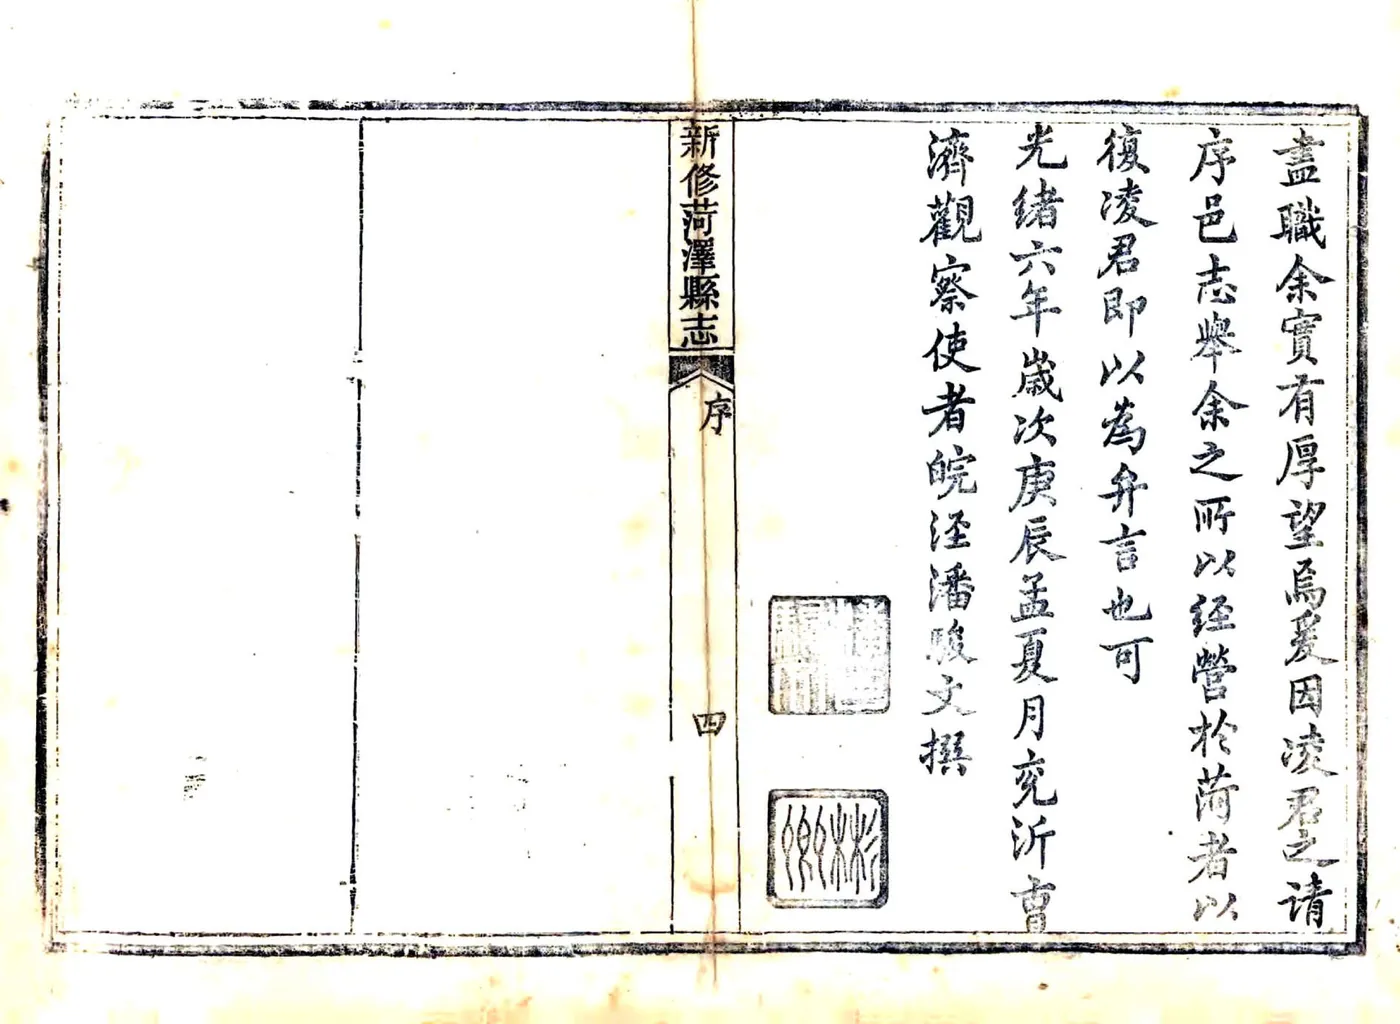 盡職余實有厚望焉爰因凌君之請
序邑志舉余之所以經營於菏者以
復凌君即以為弁言也可
光緒六年歲次庚辰孟夏月兖沂曹
濟觀察使者皖涇潘駿文撰
彬卿
新修菏澤縣志
序
四